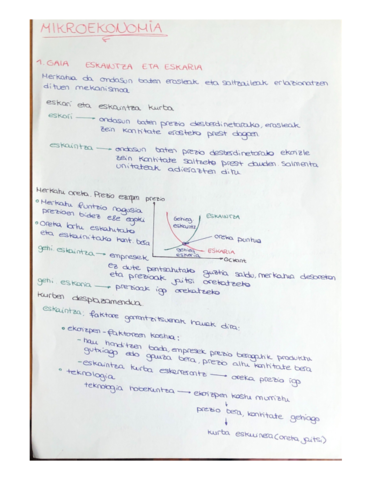 MIKROEKONOMIA
1. GAIA ESKAINTZA ETA ESKARIA
Merkatua da ondasun baten erosleak eta saltzaileak erlazionatzen
dituen mekanismoa.
eskari eta eskaintza kurba
eskari → ondasun baten prezio desberdinetarako, erosleak
zein kantitate erosteko prest dagoen
eskaintza → ondasun baten prezio desberdinetarako ekoizle
zein kantitate saltzeko prest dauden salmenta
unitateak adierazten ditu.
Merkatu oreka. Prezio ezarpen
prezio
• Merkatu funtzio nagusia
prezioen bidez ezle egokia
• Oreka lortu eskatutako
eta eskainitako kant. bera
Gehiegi
eskaintza
ESKAINTZA
oreka puntua
Gehiegi
eskaria
ESKARIA
gehi eskaintza → enpresek
ez dute pentsatutako guztia saldu, merkatua desorekan
eta prezioak jaitsi orekatzeko
gehi eskaria → prezioak igo orekatzeko
Kurben desplazamendua.
eskaintza: faktore garrantzitsuenak hauek dira:
• ekoizpen-faktoreen kostua:
- hau handitzen bada, enpresek prezio beragatik, produktu
gutxiago edo gauza bera, prezio altu kantitate bera
- eskaintza kurba ezkerrerantz → oreka prezioa igo
• teknologia.
teknologia hobekuntza → ekoizpen kostu murriztu
prezio bera, kantitate gehiago
kurba eskuinera (oreka jaitsi)